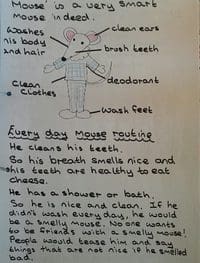 Mouse is a very smart
mouse indeed.
Washes
his body
and hair
clean ears
brush teeth
deodorant
Clean
Clothes
Wash feet
Every day Mouse routine
He cleans his teeth.
So his breath smells nice and
his teeth are healthy to eat
cheese.
He has a shower or bath.
So he is nice and clean. If he
didn't wash every day, he would
be a smelly mouse. No one wants
to be friends with a smelly mouse!
People would tease him and say
things that are not nice if he smelled
bad.